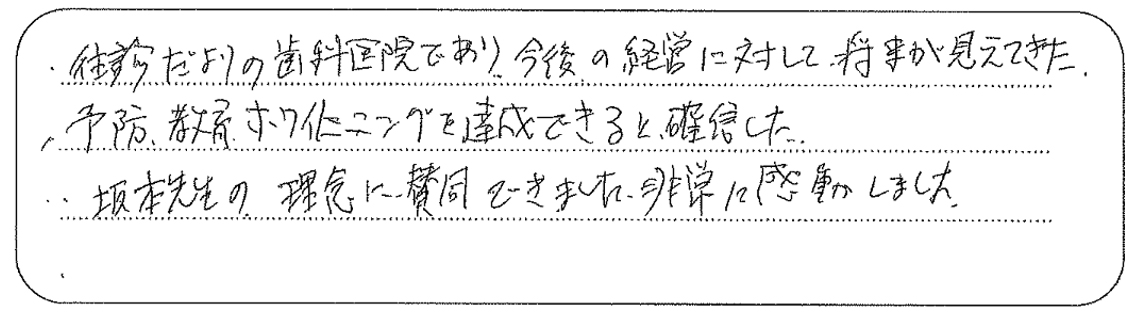 ・往診だよりの歯科医院であり、今後の経営に対して将来が見えてきた。
・予防、教育、ホワイトニングを達成できると、確信した。
・坂本先生の理念に賛同できました。非常に感動しました。
・